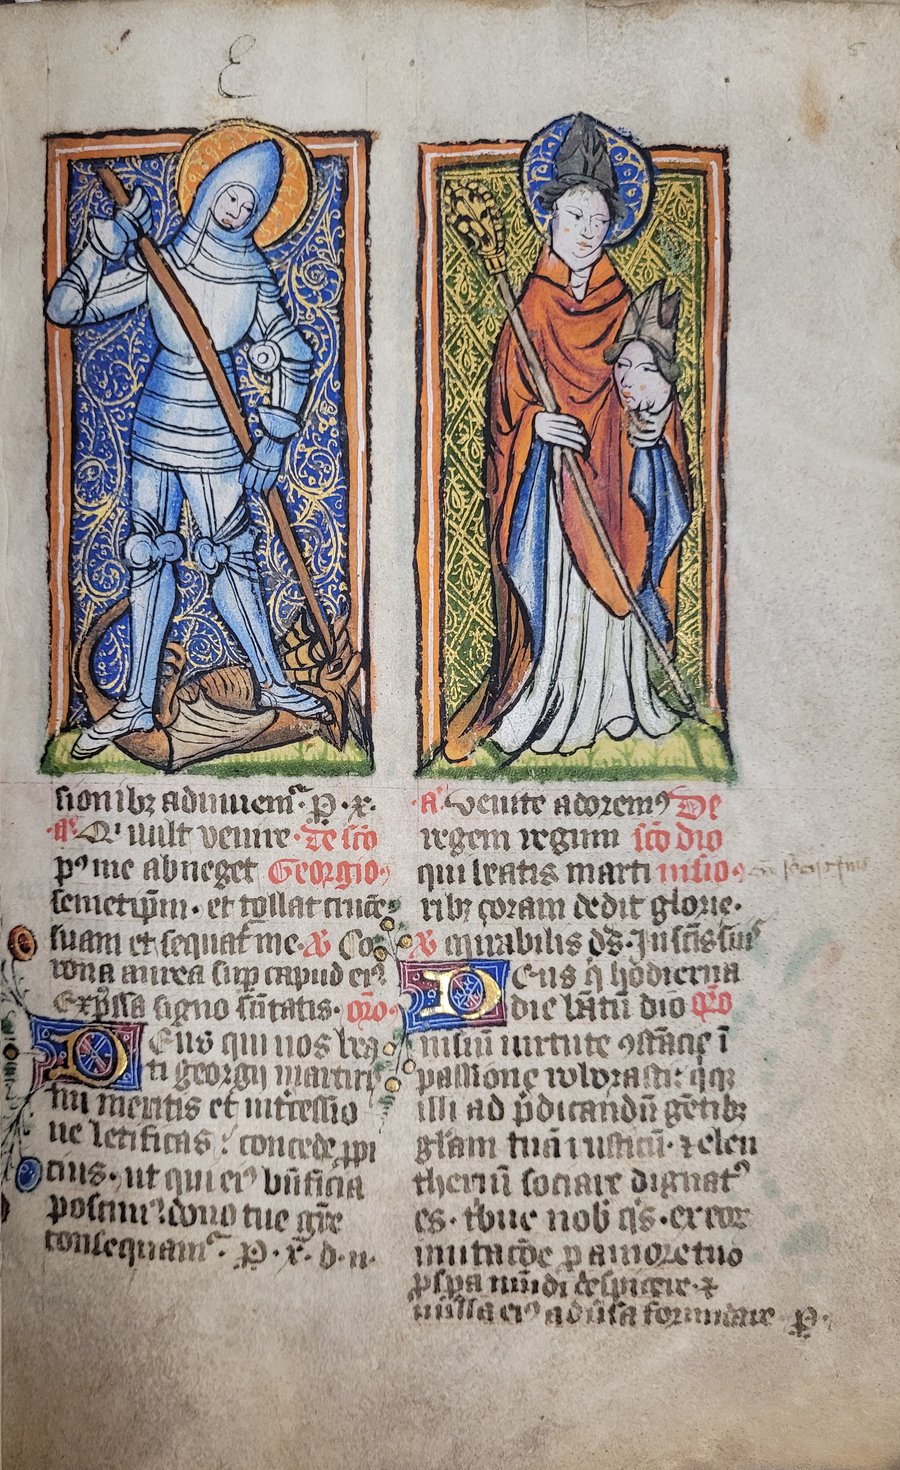 E
5
sionibꝫ adiuuemꝰ· P· x·
·a· Qi uult venire· De sc̄o
pꝰ me abneget Georgio·
semetip̄m· et tollat crucē
suam et sequat᷑ me· ꝟ Co
rona aurea sup̲ capud eiꝰ
Exp̄ssa signo sc̄itatis· or̄o·
Deus qui nos bea
ti georgij martiris
tui meritis et int̄cessio
ne letificas: concede ꝓpi
cius· ut qui eiꝰ bn̄ficia
poscimꝰ· dono tue gr̄e
consequamꝰ· P· x̄· d· n·
·a· Venite adoremꝰ De
regem regum sc̄o dio
qui beatis marti nisio·
ribꝫ coram dedit glorie·
ꝟ mirabilis dꝰ· In sc̄is suis
Deus q̄ hodierna
die bātū dio or̄o
nisiū uirtute ꝯstācie ī
passione roborasti: q̄ꝗꝫ
illi ad p̄dicandū gētibꝫ
gl̄am tuā rusticū· ⁊ eleu
theriū sociare dignatꝰ
es· t̄bue nob̄ q̄s· ex eoꝝ
imitac̄oe p̲ amore tuo
p̄sp̲a mūdi despic̄e· ⁊
nulla eiꝰ adūsa formidare P·